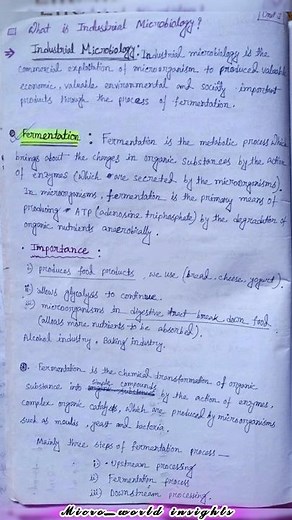 What is Industrial Microbiology?
→ Industrial Microbiology: Industrial microbiology is the
commercial exploitation of microorganism to produced valuable
economic, valuable environmental and socity important
products through the process of fermentation.
Fermentation : Fermentation is the metabolic process which
brings about the changes in organic substances by the action
of enzymes (which are secreted by the microorganisms).
In microorganisms, fermentation is the primary means of
producing ATP (adenosine triphosphate) by the degradation of
organic nutrients anaerobically.
• Importance :
i) produces food products, we use (bread, cheese, yogurt).
ii) allows glycolysis to continue.
iii) microorganisms in digestive tract break down food
(allows more nutrients to be absorbed).
Alcohol industry, Baking industry.
Fermentation is the chemical transformation of organic
substance into simple compounds by the action of enzymes,
complex organic catalysts, which are produced by microorganisms
such as moulds, yeast and bacteria.
Mainly three steps of fermentation process —
i) • Upstream processing
ii) Fermentation process
iii) Downstream processing.
Micro_world insights